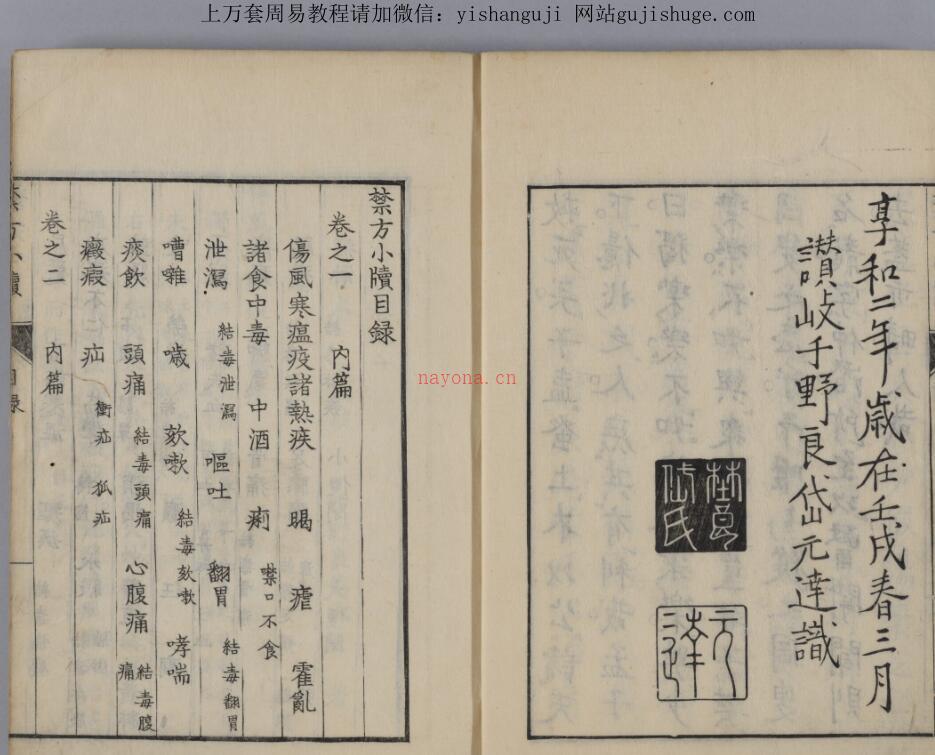 上万套周易教程请加微信：yishanguji 网站gujishuge.com
享和二年歲在壬戌春三月
讃岐千野良岱元達識
岱氏
元達
nayona.cn
禁方小牘目録
卷之一 內篇
傷風寒瘟疫諸熱疾 暍 瘧 霍亂
諸食中毒 中酒 痢 噤口不食
泄瀉 結毒泄瀉 嘔吐 翻胃 結毒翻胃
嘈雜 噦 欬嗽 結毒欬嗽 哮喘
痰飲 頭痛 結毒頭痛 心腹痛 結毒腹痛
癥瘕不仁疝 衝疝 狐疝
卷之二 內篇